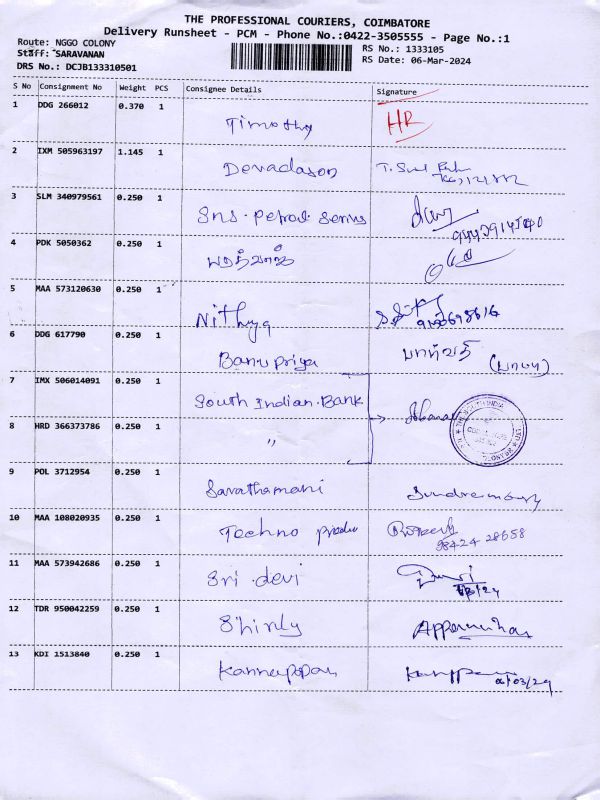 THE PROFESSIONAL COURIERS, COIMBATORE
Delivery Runsheet - PCM - Phone No.:0422-3505555 - Page No.:1
Route: NGGO COLONY
RS No.: 1333105
Staff: SARAVANAN
RS Date: 06-Mar-2024
DRS No.: DCJB133310501
S No Consignment No Weight PCS Consignee Details Signature
1 DDG 266012 0.370 1 Timothy HR
2 IXM 505963197 1.145 1 Devadason
3 SLM 340979561 0.250 1 Sns. Petrol
4 PDK 5050362 0.250 1
5 MAA 573120630 0.250 1 Nithya
6 DDG 617790 0.250 1 Banupriya பார்வதி
7 IMX 506014091 0.250 1 South Indian.Bank
8 HRD 366373786 0.250 1 "
9 POL 3712954 0.250 1 Sarathamani
10 MAA 108020935 0.250 1 Techno
98424 28658
11 MAA 573942686 0.250 1 Sri devi
12 TDR 950042259 0.250 1 Shinly
13 KDI 1513840 0.250 1 Kannappan
06/03/24